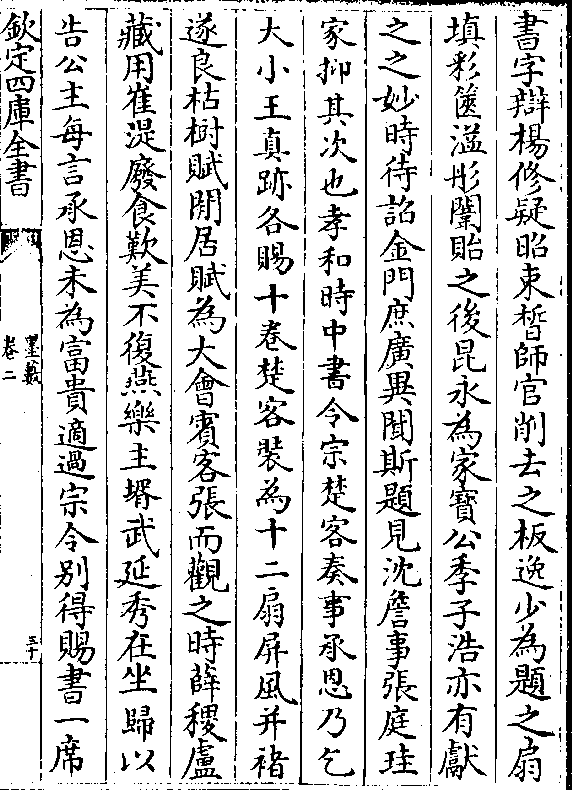 書字辯楊修疑昭束晳師官削去之板逸少為題之扇
填彩篋溢彤闈貽之後昆永為家寶公季子浩亦有獻
之之妙時待詔金門庶廣異聞斯題見沈詹事張庭珪
家抑其次也孝和時中書令宗楚客奏事承恩乃乞
大小王真跡各賜十卷楚客裝為十二扇屏風并褚
遂良枯樹賦閑居賦為大會賓客張而觀之時薛稷盧
藏用崔湜廢食歎美不復燕樂主壻武延秀在坐歸以
告公主每言承恩未為富貴適過宗令別得賜書一席
欽定四庫全書
墨藪
卷二
三十